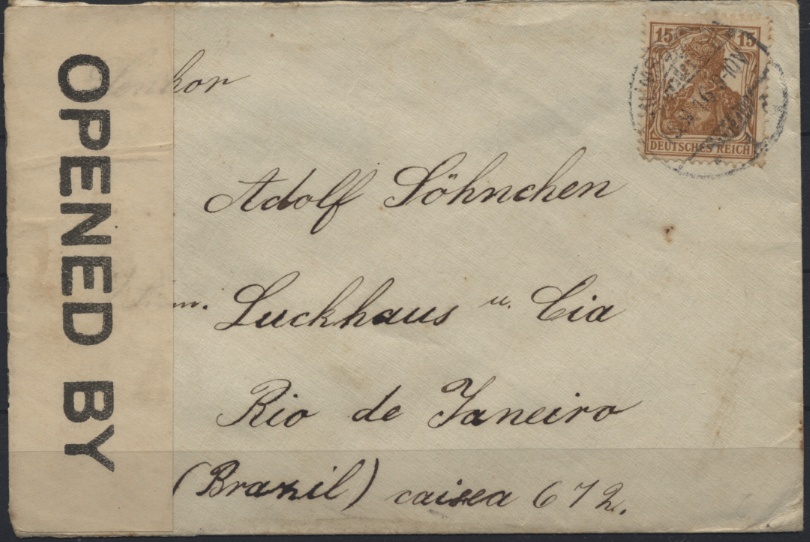 OPENED BY
15 15
DEUTSCHES REICH
Senhor
Adolf Söhnchen
Luckhaus u. Cia
Rio de Janeiro
(Brazil) caixa 672.